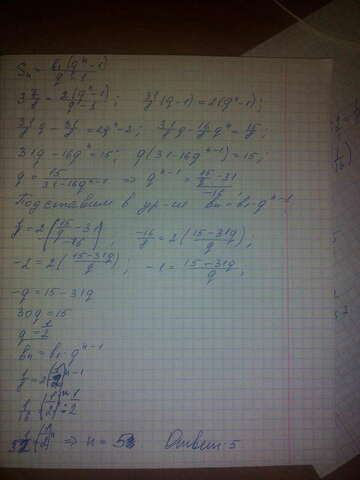 Sn = b1(q^n - 1)/(q - 1)
3 7/8 = 2(q^n - 1)/(q - 1); 31/8 (q - 1) = 2(q^n - 1);
31/8 q - 31/8 = 2q^n - 2; 31/8 q - 16/8 q^n = 15/8;
31q - 16q^n = 15; q(31 - 16q^n-1) = 15;
q = 15/(31 - 16q^n-1) ⇒ q^n-1 = (15/q - 31)/-16
Подставим в ур-ие bn = b1·q^n-1
1/8 = 2((15/q - 31)/-16); -16/8 = 2((15 - 31q)/q)
-2 = 2((15 - 31q)/q); -1 = (15 - 31q)/q;
-q = 15 - 31q
30q = 15
q = 1/2
bn = b1·q^n-1
1/8 = 2(1/2)^n-1
1/16 = (1/2)^n : 1/2
(1/2)^n ⇒ n = 5 Ответ: 5